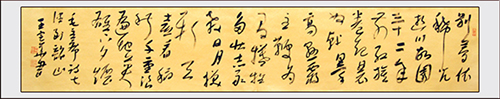 别梦依
稀咒
逝川故园
三十二年
前红旗
卷起农
奴戟黑
手高悬霸
主鞭为
有牺牲
多壮志
敢教日月换
新天
喜看稻
菽千重浪
遍地英
雄下夕烟
毛主席诗七
律到韶山
书